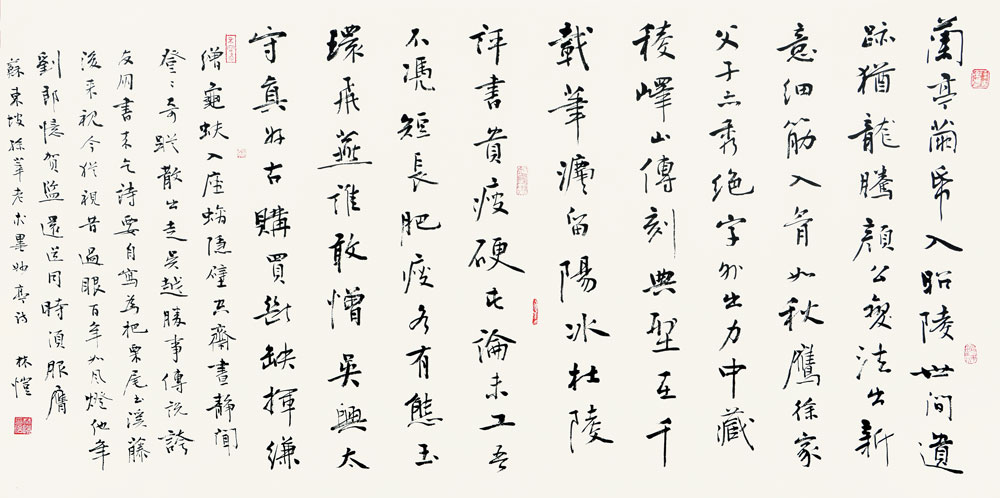 蘭亭繭帋入昭陵世間遺
跡猶龍騰顏公變法出新
意細筋入骨如秋鷹徐家
父子亦秀絕字外出力中藏
稜嶧山傳刻典型在千
載筆灋留陽冰杜陵
評書貴瘦硬此論未公吾
不憑短長肥瘦各有態玉
環飛燕誰敢憎吳興太
守真好古購買斷缺揮縑
繒龜趺入座螭隱壁空齋晝靜聞
登〻奇蹤散出走吳越勝事傳說誇
友朋書來乞詩要自寫為把栗尾書溪藤
後來視今猶視昔過眼百年如風燈他年
劉郎憶賀監還道同時須服膺
蘇東坡孫莘老求墨妙亭詩 林愷